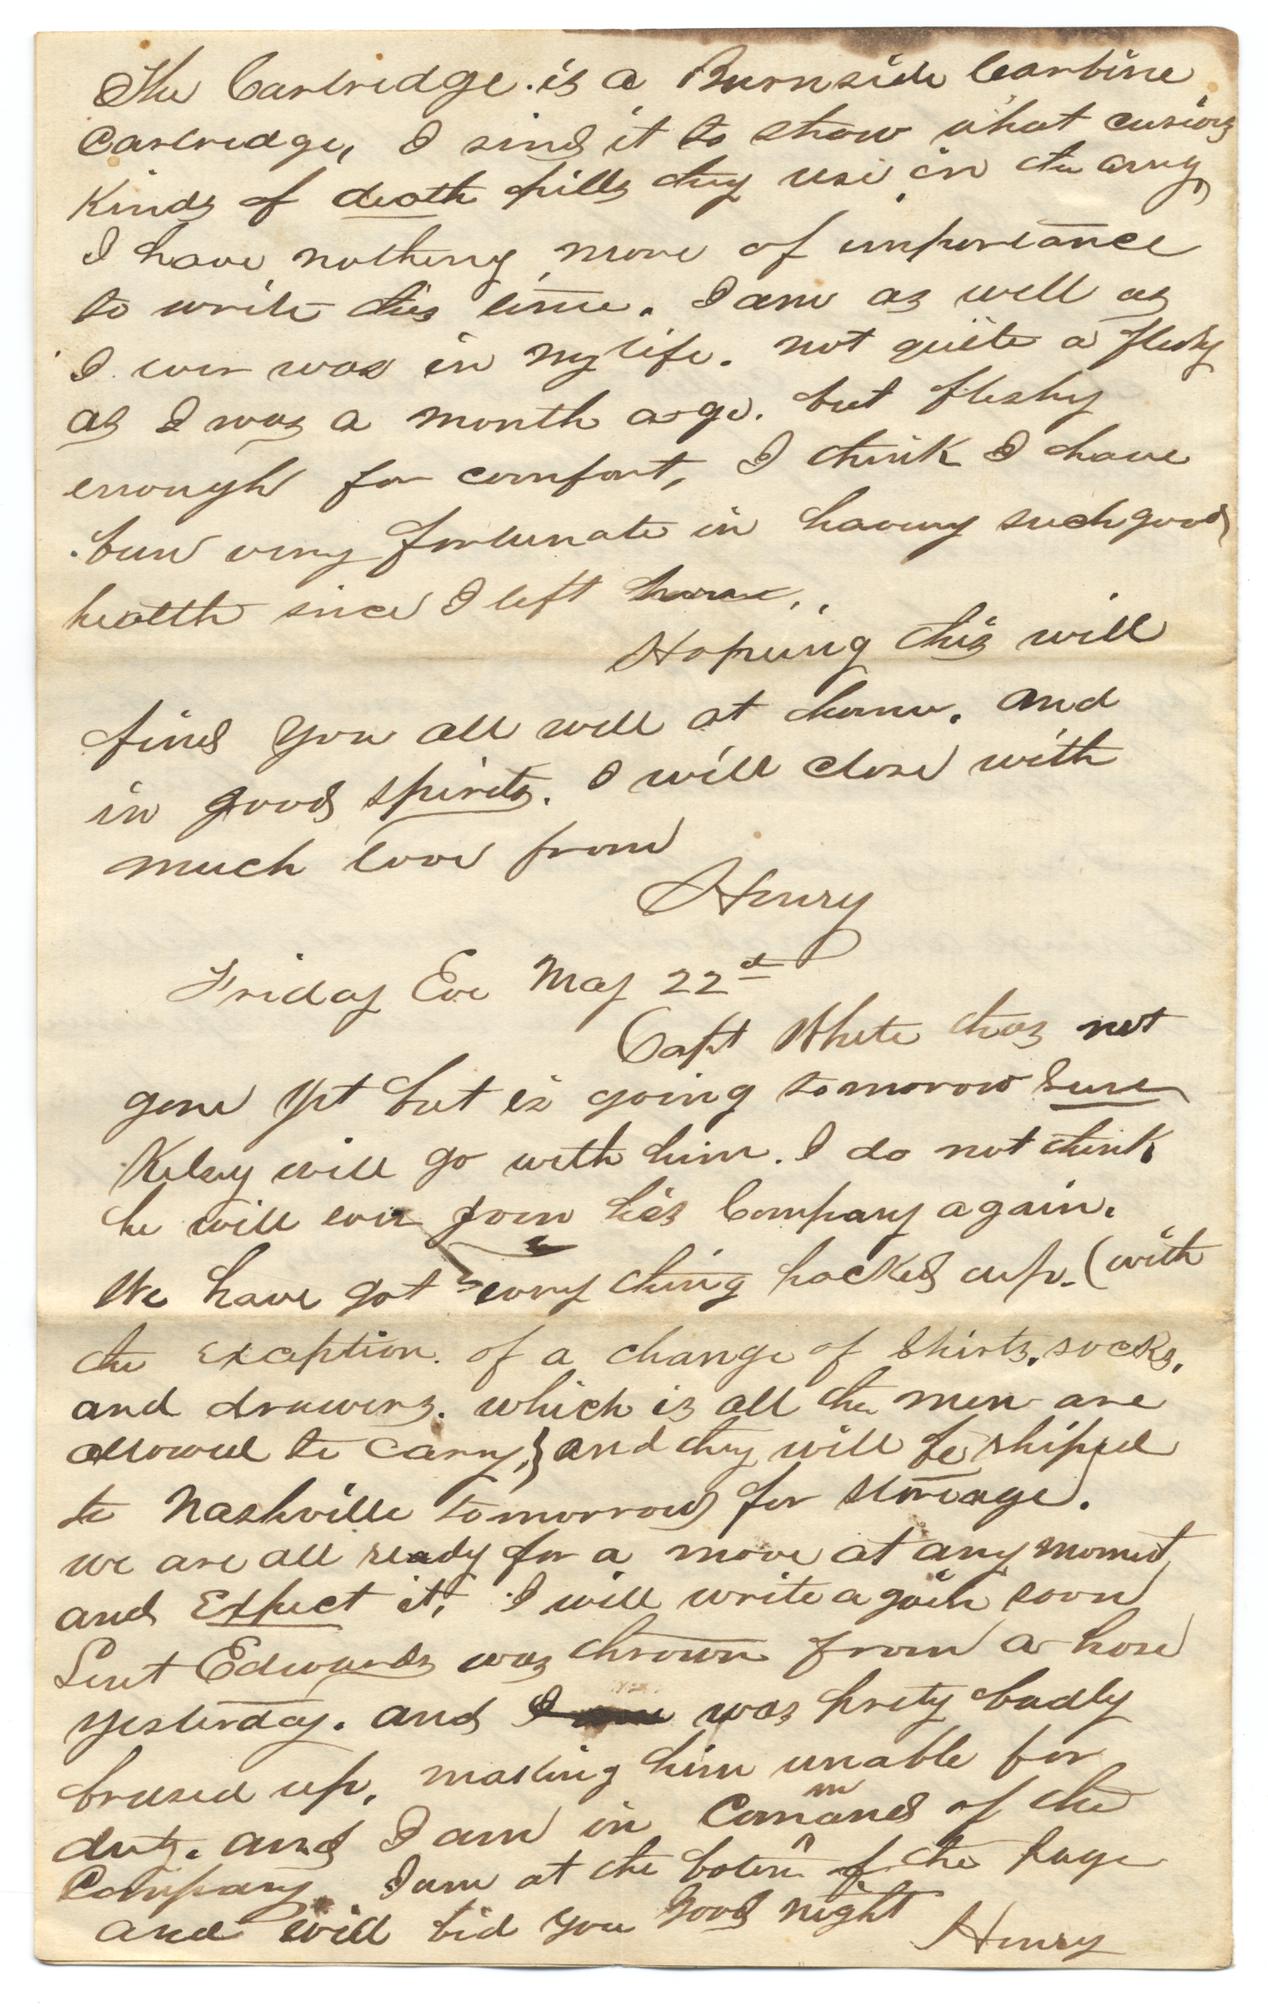 The Cartridge is a Burnside Carbine
Cartridge, I send it to show what curious
kinds of death pills they use in the army,
I have nothing more of importance
to write this time. I am as well as
I ever was in my life. not quite a fleshy
as I was a month ago. but fleshy
enough for comfort, I think I have
been very fortunate in having such good
health since I left home.
Hopeing this will
find you all well at home. and
in good spirits. I will close with
much love from
Henry
Friday Eve May 22d
Capt White has not
gone yet but is going tomorow sure
Kelsey will go with him. I do not think
he will ever join his Company again.
We have got every thing packed up. (with
the exception of a change of shirts. socks.
and drawers. which is all the men are
allowed to carry,} and they will be shiped
to Nashville tomorrow for storage.
we are all ready for a move at any moment
and Expect it, I will write again soon
Lieut Edwards was thrown from a horse
yesterday. and was prety badly
brused up. making him unable for
duty. and I am in Command of the
Company. I am at the botem of the page
and will bid you good night Henry